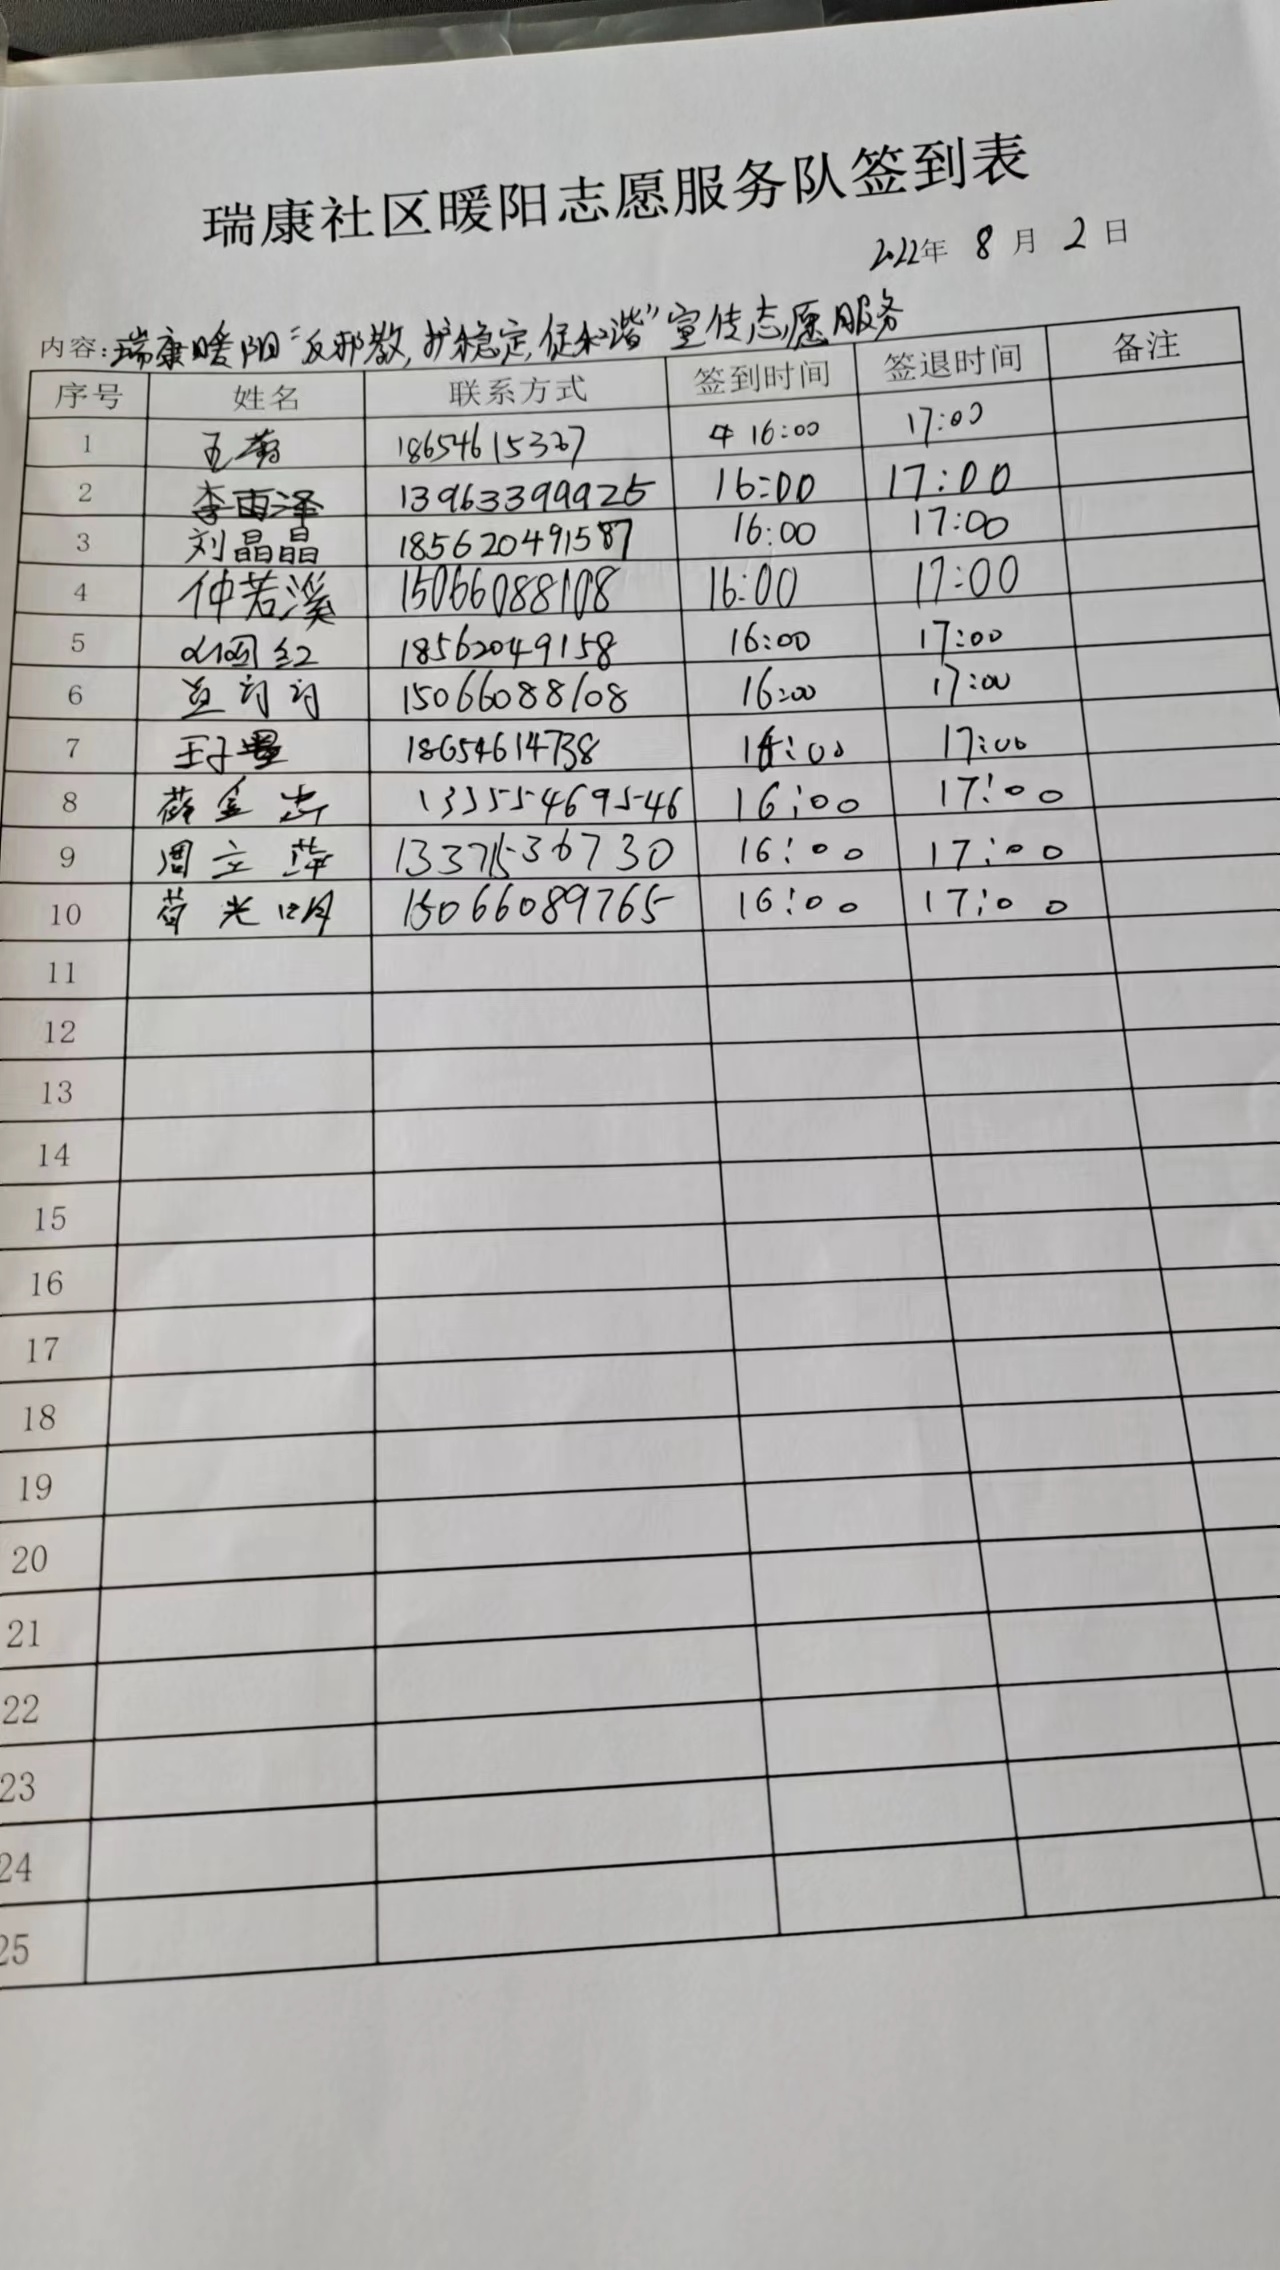 瑞康社区暖阳志愿服务队签到表
2022年 8 月 2 日
内容:瑞康暖阳“反邪教,护稳定,促和谐”宣传志愿服务
序号 姓名 联系方式 签到时间 签退时间 备注
1 王菊 18654615327 16:00 17:00
2 李雨泽 13963399925 16:00 17:00
3 刘晶晶 185620491587 16:00 17:00
4 仲若溪 15066088108 16:00 17:00
5 18562049158 16:00 17:00
6 15066088108 16:00 17:00
7 王子 18654614738 16:00 17:00
8 薛金 13355469546 16:00 17:00
9 周立萍 13371536730 16:00 17:00
10 15066089765 16:00 17:00
11
12
13
14
15
16
17
18
19
20
21
22
23
24
25